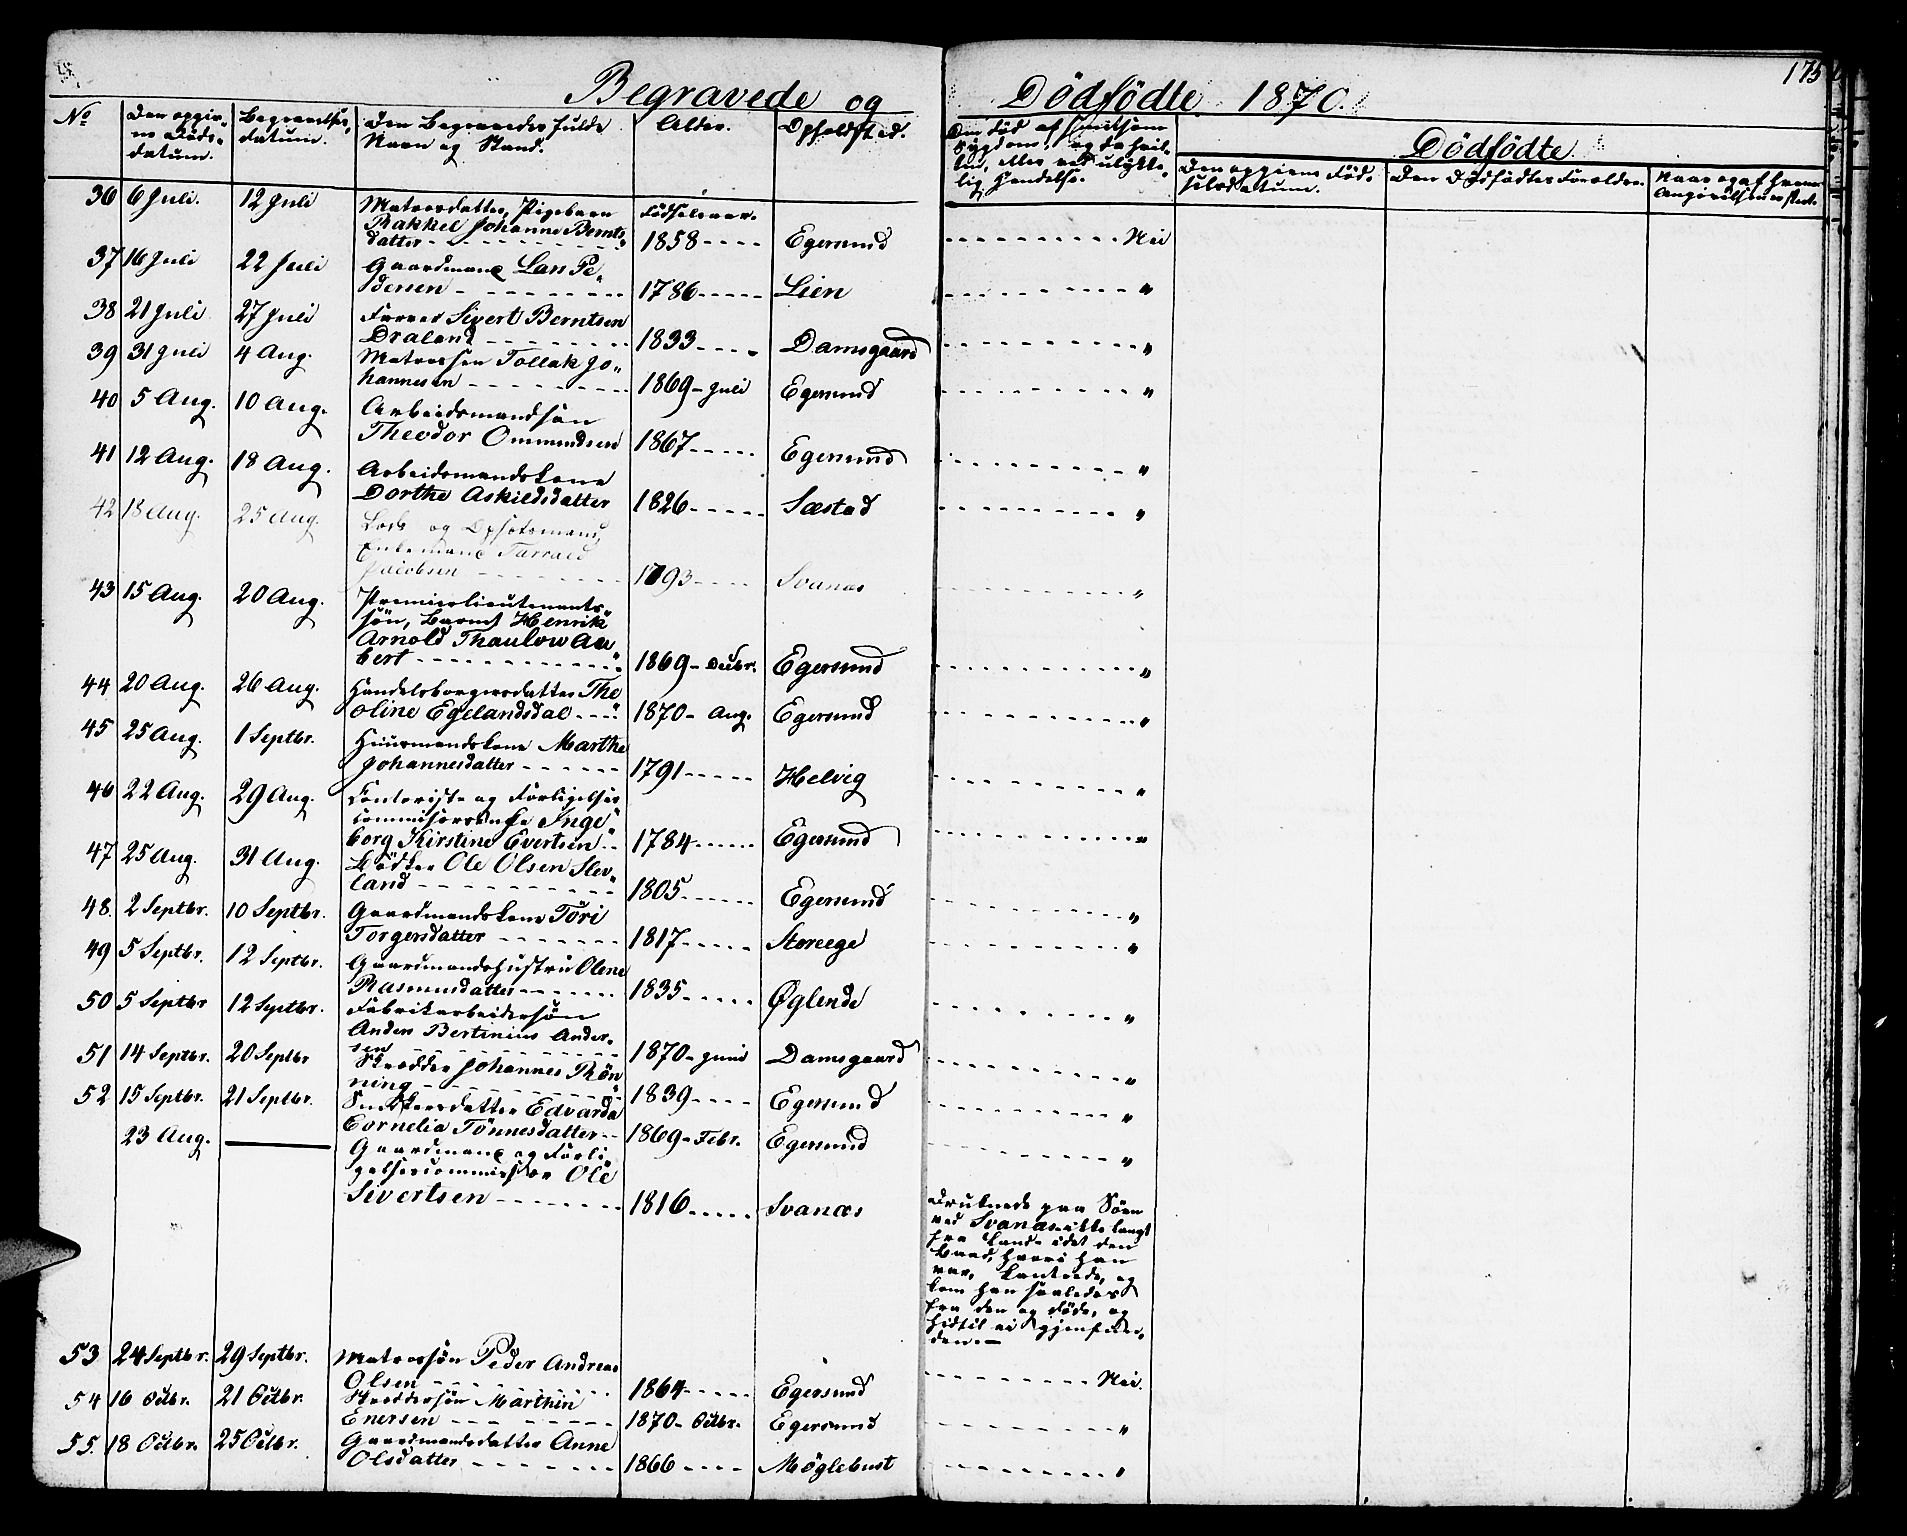 Begravede og Dödfödte 1870.
175
No
Den opgivne Döds-datum.
Begravelses-datum.
Den Begravedes fulde Navn og Stand.
Alder.
Opholdsted.
Om Död af smitsom Sygdom, og da hvilken, eller ved ulykkelig Hendelse.
Dödfödte.
Den opgivne Födselsdatum.
Den Dödfödtes Forældre.
36 6 Juli. 12 Juli Matrosdatter, Pigebarn
Rakkel Johanne Bernts-
datter Födselsaar. 1858 Egersund Nei
37 16 Juli 22 Juli Gaardmand Lars Pe-
dersen 1786 Lien "
38 21 Juli 27 Juli Farver Sivert Berntsen
Draland 1833 Damsgaard "
39 31 Juli 4 Aug. Matrossön Tollak Jo-
hannesen 1869 - Juli Egersund "
40 5 Aug. 10 Aug. Arbeidsmandsön
Theodor Ommundsen 1867 Egersund "
41 12 Aug. 18 Aug. Arbeidsmandskone
Dorthe Askieldsdatter 1826 Sæstad "
42 18 Aug. 25 Aug. Lods og Opsotsmand,
Enkemand Tarrald
Jacobsen 1793 Svanæs "
43 15 Aug. 20 Aug. Premierlieutenants-
sön, Barnet Henrik
Arnold Thaulow Au-
bert 1869 - Decbr. Egersund "
44 20 Aug. 26 Aug. Handelsborgersdatter The-
oline Egelandsdal 1870 - Aug. Egersund "
45 25 Aug. 1 Septbr. Huusmandskone Marthe
Johannesdatter 1791 Helvig "
46 22 Aug. 29 Aug. Contorist og Forligelses-
commisærenke Inge-
borg Kirstine Evertsen 1784 Egersund "
47 25 Aug. 31 Aug. Bödker Ole Olsen Slev-
land 1805 Egersund "
48. 2 Septbr. 10 Septbr. Gaardmandskone Töri
Torgersdatter 1817 Støreege "
49 5 Septbr. 12 Septbr. Gaardmandshustru Olene
Rasmusdatter 1835 Øglende "
50 5 Septbr 12 Septbr. Fabrikarbeidersön
Anders Bertinius Ander-
sen 1870 - Juni Damsgaard "
51 14 Septbr. 20 Septbr Skrædder Johannes Rön-
ning 1839 Egersund "
52 15 Septbr. 21 Septbr. Snedkersdatter Edvarda
Cornelia Tönnesdatter 1869 - Febr. Egersund "
23 Aug. — Gaardmand og Forli-
gelsescommissær Ole
Sivertsen 1816 Svanæs
Druknede paa Söen
ved Svanæs ikke langt
fra Land idet den
Baad, hvori han
var, kantrede, og
kom han saaledes
fra den og döde, og
hidtil ei gjenfun-
den. —
53 24 Septbr. 29 Septbr. Matrossön Peder Andreas
Olsen 1864 Egersund Nei.
54 16 Octbr. 21 Octbr. Skreddersön Marthin
Enersen 1870 - Octbr. Egersund "
55. 18 Octbr. 25 Octbr. Gaardmandsdatter Anne
Olsdatter 1866 Møglebust "